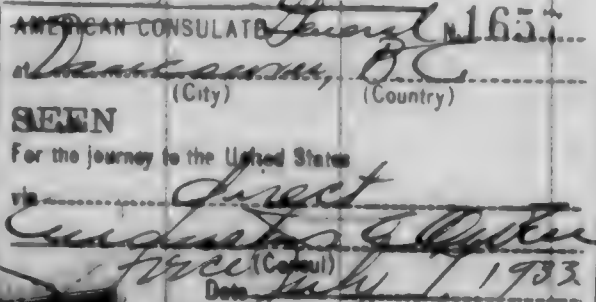 AMERICAN CONSULATE General No. 1657
at Vancouver, BC
(City) (Country)
SEEN
For the journey to the United States
via direct
(Consul)
Vice
Date July 1933